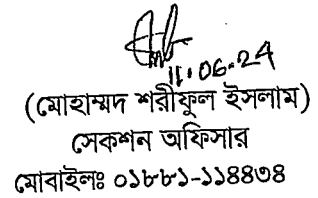 11.06.24
(মোহাম্মদ শরীফুল ইসলাম)
সেকশন অফিসার
মোবাইলঃ ০১৮৮১-১১৪৪৩৪